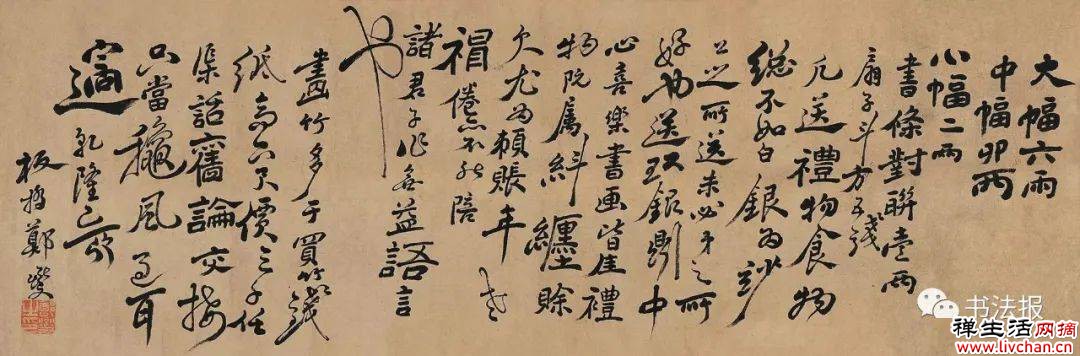 大幅六兩
中幅四兩
小幅二兩
書條對聯壹兩
扇子斗方五錢
凡送禮物食物
總不如白銀為妙
公之所送未必弟之所
好也送現銀則中
心喜樂書画皆佳禮
物既屬糾纏賒
欠尤為賴賬年老
神倦亦不能陪
諸君子作無益語言
也
畫竹多于買竹錢
紙高六尺價三千任
渠話舊論交接
只當秋風過耳
邊 乾隆己卯
板橋鄭燮
书法报
禅生活网摘
www.livchan.cn